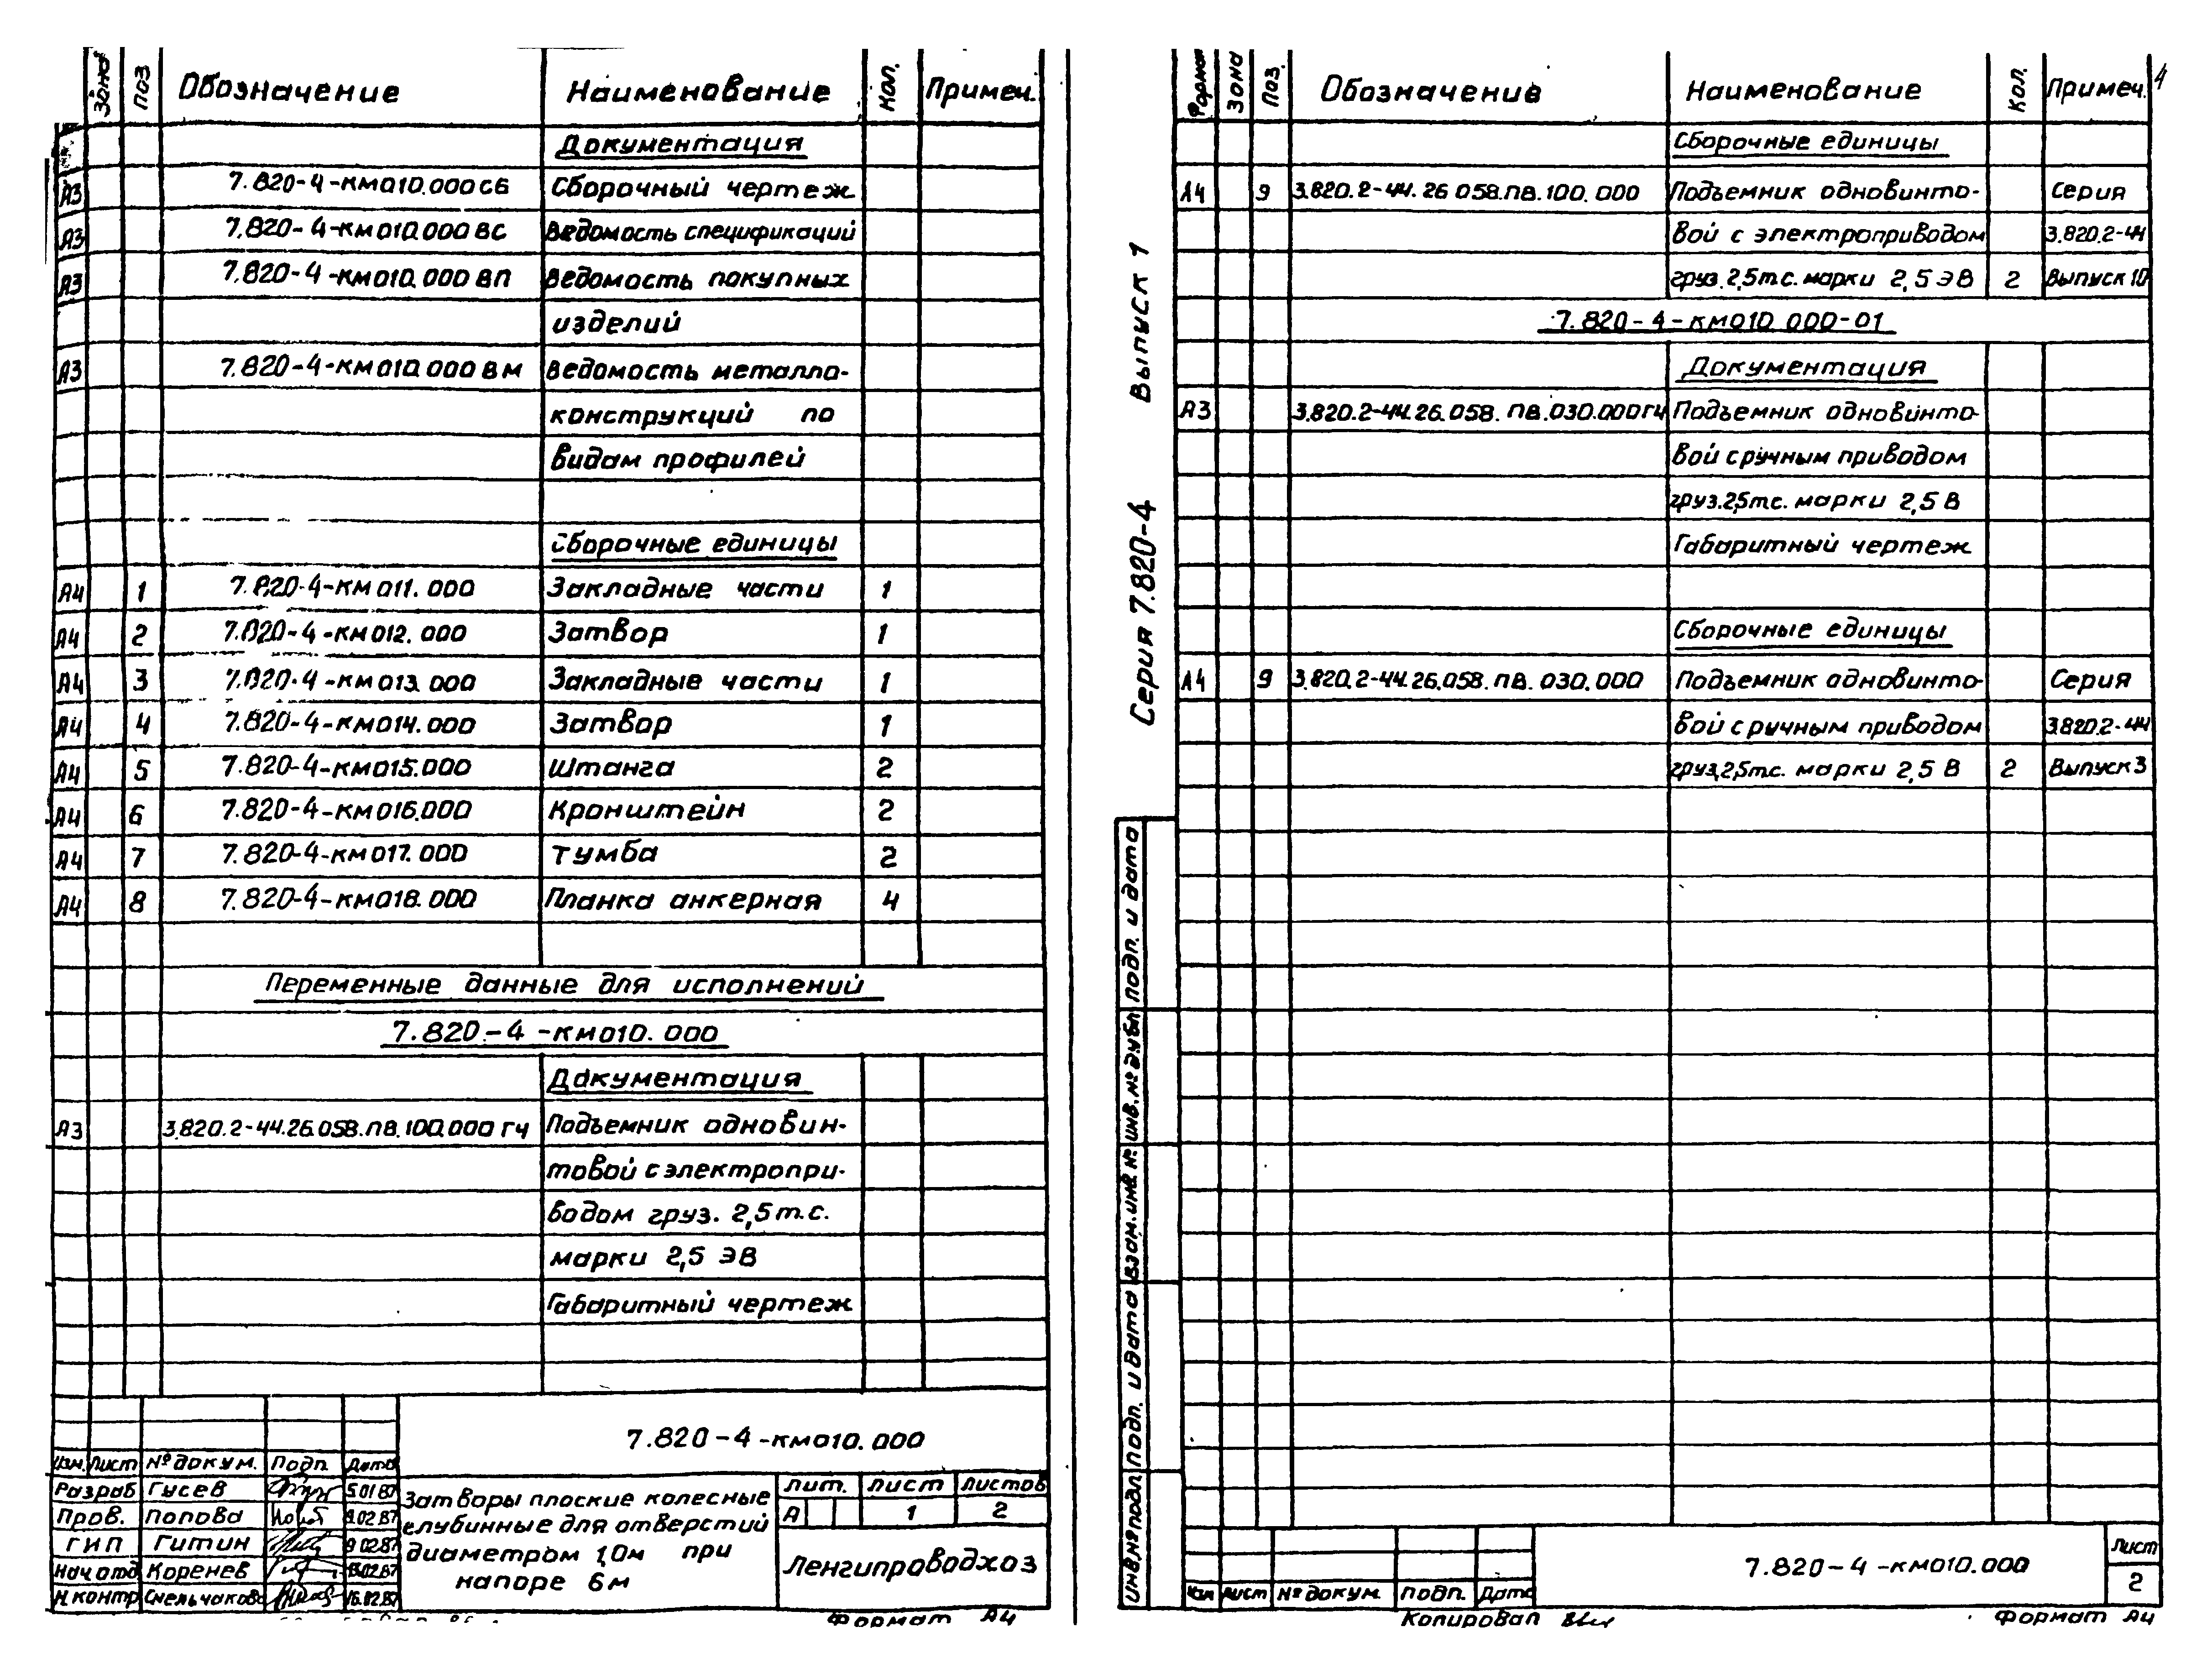 Зона Поз Обозначение Наименование Кол. Примеч.
Документация
А3 7.820-4-КМ010.000СБ Сборочный чертеж
А3 7.820-4-КМ010.000ВС Ведомость спецификаций
А3 7.820-4-КМ010.000ВП Ведомость покупных
изделий
А3 7.820-4-КМ010.000ВМ Ведомость металло-
конструкций по
видам профилей
Сборочные единицы
А4 1 7.820-4-КМ011.000 Закладные части 1
А4 2 7.820-4-КМ012.000 Затвор 1
А4 3 7.820-4-КМ013.000 Закладные части 1
А4 4 7.820-4-КМ014.000 Затвор 1
А4 5 7.820-4-КМ015.000 Штанга 2
А4 6 7.820-4-КМ016.000 Кронштейн 2
А4 7 7.820-4-КМ017.000 Тумба 2
А4 8 7.820-4-КМ018.000 Планка анкерная 4
Переменные данные для исполнений
7.820-4-КМ010.000
Документация
А3 3.820.2-44.26.058.ПВ.100.000ГЧ Подъемник одновин-
товой с электропри-
водом груз. 2,5т.с.
марки 2,5 ЭВ
Габаритный чертеж
7.820-4-КМ010.000
Изм. Лист № докум. Подп. Дата
Разраб Гусев 5.01 87
Пров. Попова 9.02.87
ГИП Гитин 9 02.87
Нач отд Коренев 02.87
Н.контр Смельчакова 16.02.87
Затворы плоские колесные
глубинные для отверстий
диаметром 1,0м при
напоре 6м
Лит. Лист Листов
А 1 2
Ленгипроводхоз
Формат А4
4
Формат Зона Поз. Обозначение Наименование Кол. Примеч.
Сборочные единицы
А4 9 3.820.2-44.26.058.ПВ.100.000 Подъемник одновинто- Серия
вой с электроприводом 3.820.2-44
груз. 2,5т.с. марки 2,5 ЭВ 2 Выпуск 10
7.820-4-КМ010.000-01
Документация
А3 3.820.2-44.26.058.ПВ.030.000ГЧ Подъемник одновинто-
вой с ручным приводом
груз.2,5т.с. марки 2,5 В
Габаритный чертеж
Сборочные единицы
А4 9 3.820.2-44.26.058.ПВ.030.000 Подъемник одновинто- Серия
вой с ручным приводом 3.820.2-44
груз.2,5т.с. марки 2,5 В 2 Выпуск 3
Серия 7.820-4 Выпуск 1
Инв.№ подл. Подп. и дата Взам.инв.№ Инв.№ дубл Подп. и дата
7.820-4-КМ010.000
Лист
2
Изм Лист № докум. Подп. Дата
Копировал
Формат А4